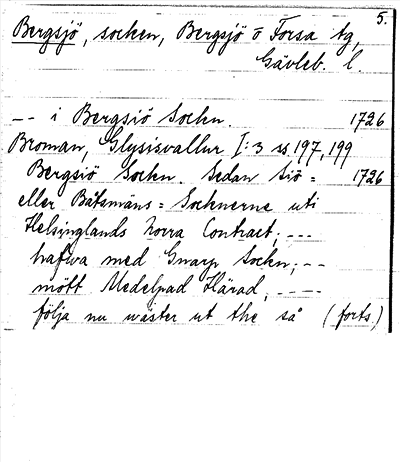 5.
Bergsjö, socken, Bergsjö o Forsa tg,
Gävleb. l.
-- i Bergsiö Sockn. 1726
Broman, Glysisvallur I:3 ss. 197, 199
Bergsiö Sockn. Sedan Siö= 1726
eller Båtsmäns=Socknerne uti
Helsinglands Norra Contract; ---
hafwa med Gnarp Sockn; --
mött Medelpad Härad; ---
följa nu wäster ut the så (forts.)